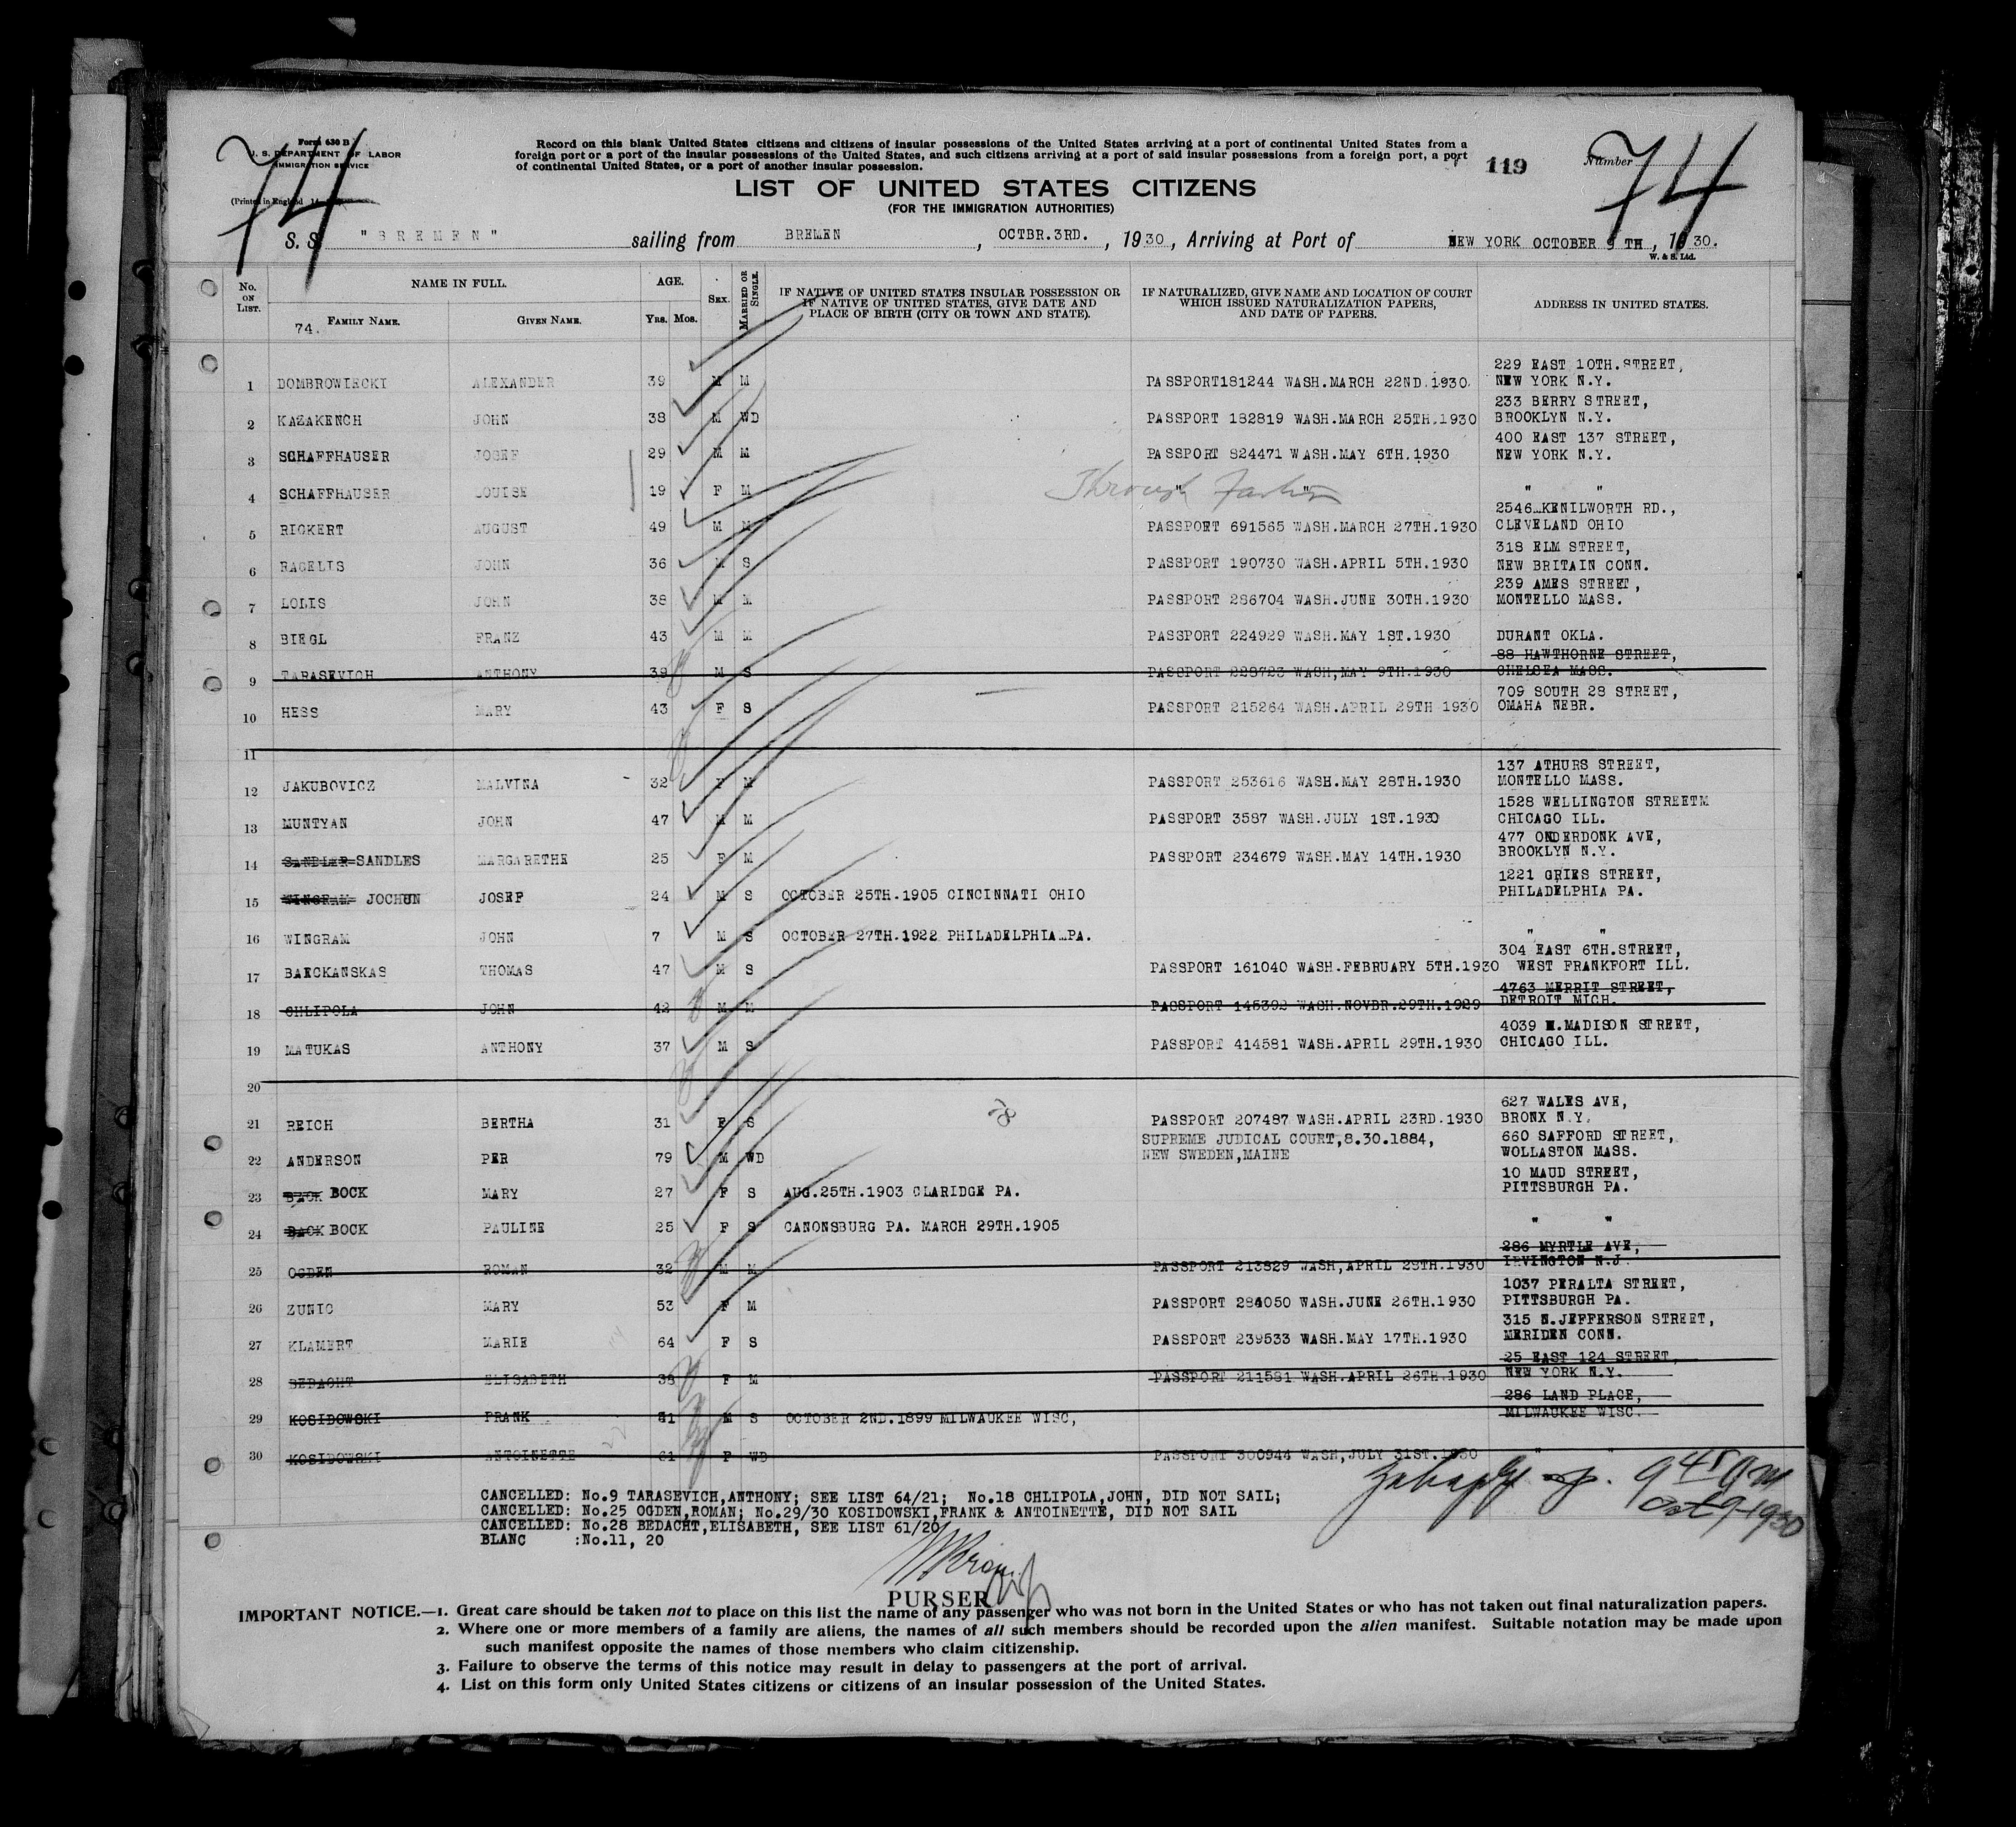 74
Form 630 B
U. S. DEPARTMENT OF LABOR
IMMIGRATION SERVICE
(Printed in England
Record on this blank United States citizens and citizens of insular possessions of the United States arriving at a port of continental United States from a
foreign port or a port of the insular possessions of the United States, and such citizens arriving at a port of said insular possessions from a foreign port, a port
of continental United States, or a port of another insular possession.
119
Number
74
LIST OF UNITED STATES CITIZENS
(FOR THE IMMIGRATION AUTHORITIES)
S. S. "BREMEN" sailing from BREMEN, OCTBR.3RD., 1930, Arriving at Port of NEW YORK OCTOBER 9 TH, 1930.
W. & S. Ltd.
No. ON LIST. NAME IN FULL. AGE. SEX. MARRIED OR SINGLE. IF NATIVE OF UNITED STATES INSULAR POSSESSION OR IF NATIVE OF UNITED STATES, GIVE DATE AND PLACE OF BIRTH (CITY OR TOWN AND STATE). IF NATURALIZED, GIVE NAME AND LOCATION OF COURT WHICH ISSUED NATURALIZATION PAPERS, AND DATE OF PAPERS. ADDRESS IN UNITED STATES.
74. FAMILY NAME. GIVEN NAME. YRS. MOS.
229 EAST 10TH.STREET,
1 DOMBROWIECKI ALEXANDER 39 M M PASSPORT181244 WASH.MARCH 22ND.1930. NEW YORK N.Y.
233 BERRY STREET,
2 KAZAKENCH JOHN 38 M WD PASSPORT 182819 WASH.MARCH 25TH.1930 BROOKLYN N.Y.
400 EAST 137 STREET,
3 SCHAFFHAUSER JOSEF 29 M M PASSPORT 824471 WASH.MAY 6TH.1930 NEW YORK N.Y.
4 SCHAFFHAUSER LOUISE 19 F M Through " " " "
2546 KENILWORTH RD.,
5 RICKERT AUGUST 49 M M PASSPORT 691565 WASH.MARCH 27TH.1930 CLEVELAND OHIO
318 ELM STREET,
6 RAGELIS JOHN 36 M S PASSPORT 190730 WASH.APRIL 5TH.1930 NEW BRITAIN CONN.
239 AMES STREET,
7 LOLIS JOHN 38 M M PASSPORT 286704 WASH.JUNE 30TH.1930 MONTELLO MASS.
8 BIEGL FRANZ 43 M M PASSPORT 224929 WASH.MAY 1ST.1930 DURANT OKLA.
88 HAWTHORNE STREET,
9 TARASEVICH ANTHONY 39 M S PASSPORT 228723 WASH,MAY 9TH.1930 CHELSEA MASS.
709 SOUTH 28 STREET,
10 HESS MARY 43 F S PASSPORT 215264 WASH.APRIL 29TH 1930 OMAHA NEBR.
11
137 ATHURS STREET,
12 JAKUBOVICZ MALVINA 32 F M PASSPORT 253616 WASH.MAY 28TH.1930 MONTELLO MASS.
1528 WELLINGTON STREETM
13 MUNTYAN JOHN 47 M M PASSPORT 3587 WASH.JULY 1ST.1930 CHICAGO ILL.
477 ONDERDONK AVE,
14 SANDLER SANDLES MARGARETHE 25 F M PASSPORT 234679 WASH.MAY 14TH.1930 BROOKLYN N.Y.
1221 GRIES STREET,
15 WINGRAM JOCHUN JOSEF 24 M S OCTOBER 25TH.1905 CINCINNATI OHIO PHILADELPHIA PA.
16 WINGRAM JOHN 7 M S OCTOBER 27TH.1922 PHILADELPHIA PA. " "
304 EAST 6TH.STREET,
17 BARCKANSKAS THOMAS 47 M S PASSPORT 161040 WASH.FEBRUARY 5TH.1930 WEST FRANKFORT ILL.
4763 MERRIT STREET,
18 CHLIPOLA JOHN 42 M M PASSPORT 145392 WASH.NOVBR.29TH.1929 DETROIT MICH.
4039 W.MADISON STREET,
19 MATUKAS ANTHONY 37 M S PASSPORT 414581 WASH.APRIL 29TH.1930 CHICAGO ILL.
20
627 WALES AVE,
21 REICH BERTHA 31 F S PASSPORT 207487 WASH.APRIL 23RD.1930 BRONX N.Y.
SUPREME JUDICAL COURT,8.30.1884, 660 SAFFORD STREET,
22 ANDERSON PER 79 M WD NEW SWEDEN,MAINE WOLLASTON MASS.
10 MAUD STREET,
23 BACK BOCK MARY 27 F S AUG.25TH.1903 CLARIDGE PA. PITTSBURGH PA.
24 BACK BOCK PAULINE 25 F S CANONSBURG PA. MARCH 29TH.1905 " "
286 MYRTLE AVE,
25 OGDEN ROMAN 32 M M PASSPORT 213829 WASH,APRIL 28TH.1930 IRVINGTON N.J.
1037 PERALTA STREET,
26 ZUNIC MARY 53 F M PASSPORT 284050 WASH.JUNE 26TH.1930 PITTSBURGH PA.
315 N.JEFFERSON STREET,
27 KLAMERT MARIE 64 F S PASSPORT 239533 WASH.MAY 17TH.1930 MERIDEN CONN.
25 EAST 124 STREET,
28 BEDACHT ELISABETH 38 F M PASSPORT 211581 WASH.APRIL 26TH.1930 NEW YORK N.Y.
286 LAND PLACE,
29 KOSIDOWSKI FRANK 31 M S OCTOBER 2ND.1899 MILWAUKEE WISC, MILWAUKEE WISC.
30 KOSIDOWSKI ANTOINETTE 61 F WD PASSPORT 300944 WASH,JULY 31ST.1930 " "
9 45 AM
Oct 9-1930
CANCELLED: No.9 TARASEVICH,ANTHONY; SEE LIST 64/21; No.18 CHLIPOLA,JOHN, DID NOT SAIL;
CANCELLED: No.25 OGDEN,ROMAN; No.29/30 KOSIDOWSKI,FRANK & ANTOINETTE, DID NOT SAIL
CANCELLED: No.28 BEDACHT,ELISABETH, SEE LIST 61/20
BLANC :No.11, 20
PURSER
IMPORTANT NOTICE.—1. Great care should be taken not to place on this list the name of any passenger who was not born in the United States or who has not taken out final naturalization papers.
2. Where one or more members of a family are aliens, the names of all such members should be recorded upon the alien manifest. Suitable notation may be made upon
such manifest opposite the names of those members who claim citizenship.
3. Failure to observe the terms of this notice may result in delay to passengers at the port of arrival.
4. List on this form only United States citizens or citizens of an insular possession of the United States.